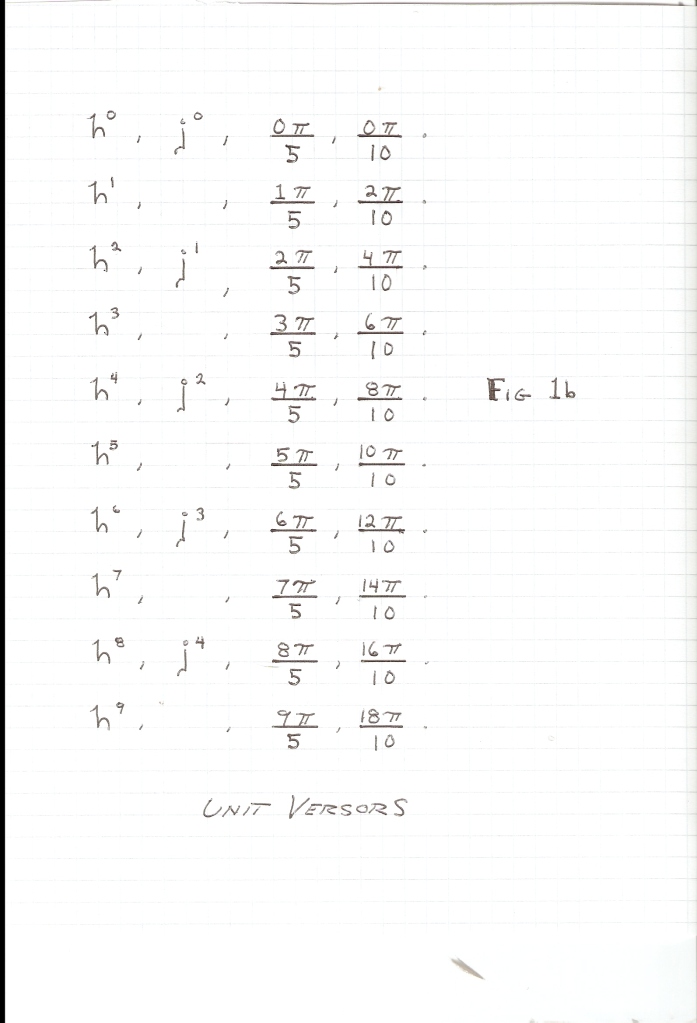 h⁰ , j⁰ , 0π/5 , 0π/10 .
h¹ , , 1π/5 , 2π/10 .
h² , j¹ , 2π/5 , 4π/10 .
h³ , , 3π/5 , 6π/10 .
h⁴ , j² , 4π/5 , 8π/10 . FIG 1b
h⁵ , , 5π/5 , 10π/10 .
h⁶ , j³ , 6π/5 , 12π/10 .
h⁷ , , 7π/5 , 14π/10 .
h⁸ , j⁴ , 8π/5 , 16π/10 .
h⁹ , , 9π/5 , 18π/10 .
UNIT VERSORS